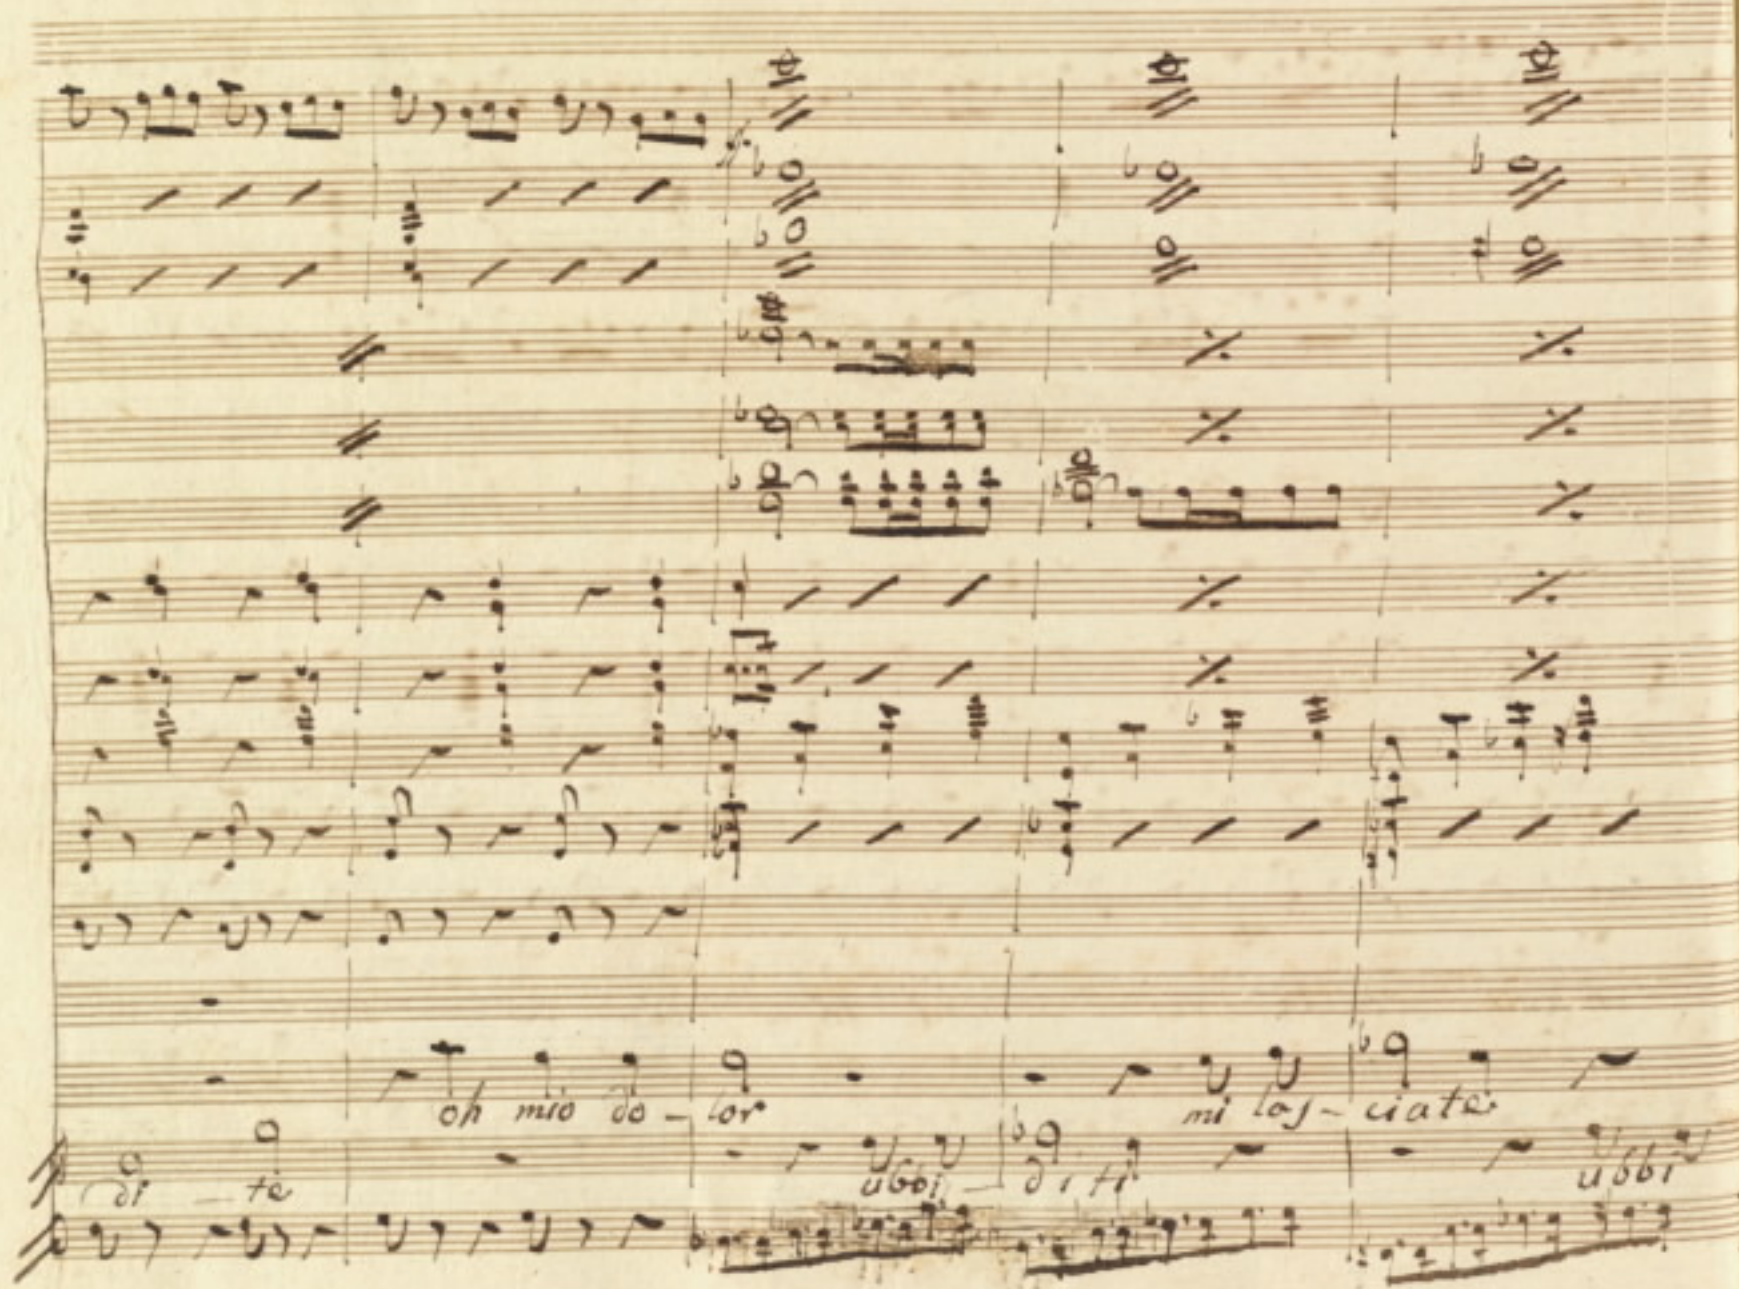 ff
oh mio do - lor mi las - ciate
di - te ubbi - diti ubbi